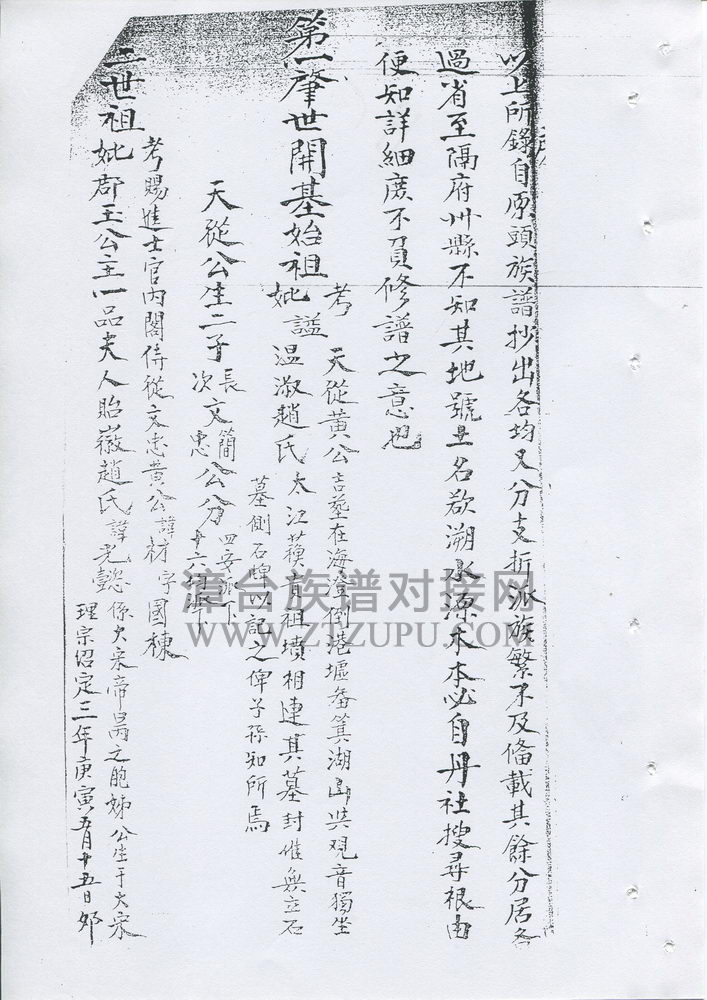 以上所錄自原頭族譜抄出各均又分支折派族繁不及俻載其餘分居各
過省至隔府州縣不知其地號且名欲溯水源木本必自丹社搜尋根由
便知詳細庶不負修譜之意也
第一肇世開基始祖
考 天從黃公吉塟在海澄倒港墟畚箕湖山典观音獨坐
妣 謚温淑趙氏太江蓧 祖墳相連其墓封堆無立石
墓側石牌以記之俾子孫知所焉
天從公生二子長文簡公分四安
次文忠公分十六
考賜進士官內閣侍從文忠黄公諱材字國棟
二世祖妣郡玉公主一品夫人貽徽趙氏諱光懿係大宋帝昺之胞姊公生于大宋
理宗绍定三年庚寅五月十五日夘
漳台族谱对接网
WWW.ZTZUPU.COM